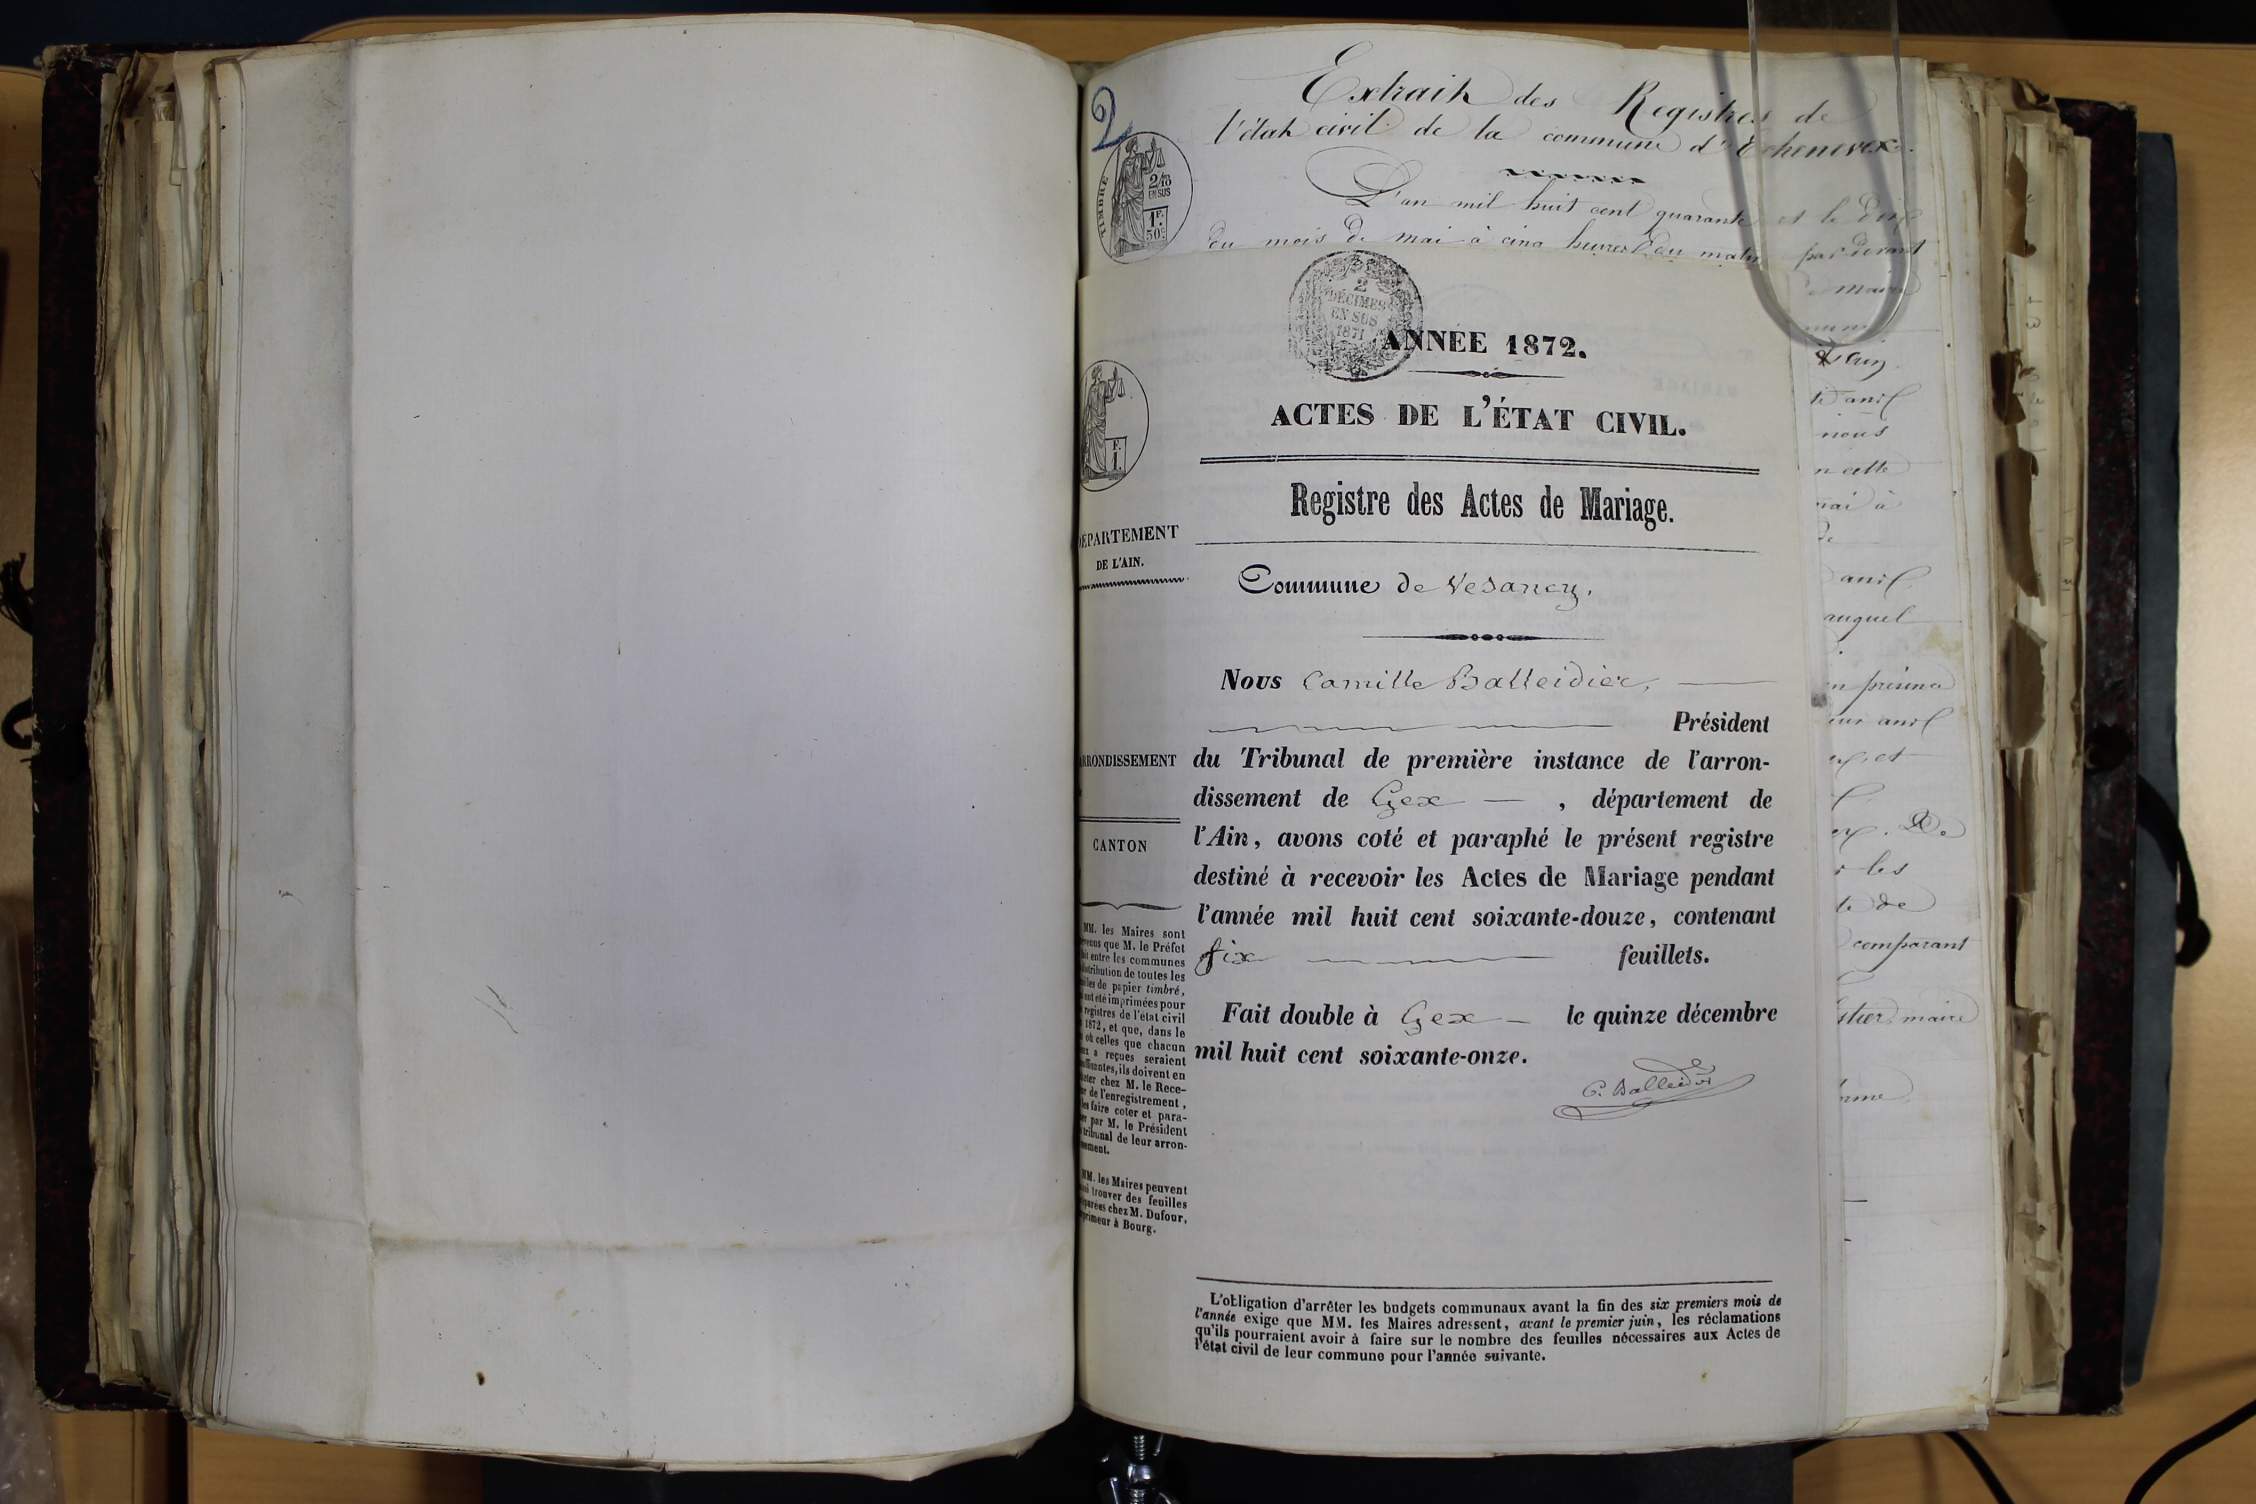 2
Extrait des Registres de
l'état civil de la commune d'Echenevex.
TIMBRE
2/10
EN SUS
1F.
50c.
L'an mil huit cent quarante et le dix
du mois de mai à cinq heures du matin par devant
maire
2
DÉCIMES
EN SUS
1871
ANNÉE 1872.
ACTES DE L'ÉTAT CIVIL.
F.
1.
Registre des Actes de Mariage.
DÉPARTEMENT
DE L'AIN.
Commune de Vesancy.
Nous Camille Balleidier,
Président
du Tribunal de première instance de l'arron-
dissement de Gex — , département de
l'Ain, avons coté et paraphé le présent registre
destiné à recevoir les Actes de Mariage pendant
l'année mil huit cent soixante-douze, contenant
six feuillets.
Fait double à Gex — le quinze décembre
mil huit cent soixante-onze.
C. Balleidier
ARRONDISSEMENT
CANTON
MM. les Maires sont
que M. le Préfet
entre les communes
distribution de toutes les
de papier timbré,
ont été imprimées pour
registres de l'état civil
1872, et que, dans le
où celles que chacun
a reçues seraient
, ils doivent en
chez M. le Rece-
de l'enregistrement,
les faire coter et para-
par M. le Président
tribunal de leur arron-
MM. les Maires peuvent
trouver des feuilles
chez M. Dufour,
à Bourg.
L'obligation d'arrêter les budgets communaux avant la fin des six premiers mois de
l'année exige que MM. les Maires adressent, avant le premier juin, les réclamations
qu'ils pourraient avoir à faire sur le nombre des feuilles nécessaires aux Actes de
l'état civil de leur commune pour l'année suivante.
nous
cette
mai à
auquel
présence
et
les
de
comparant
maire